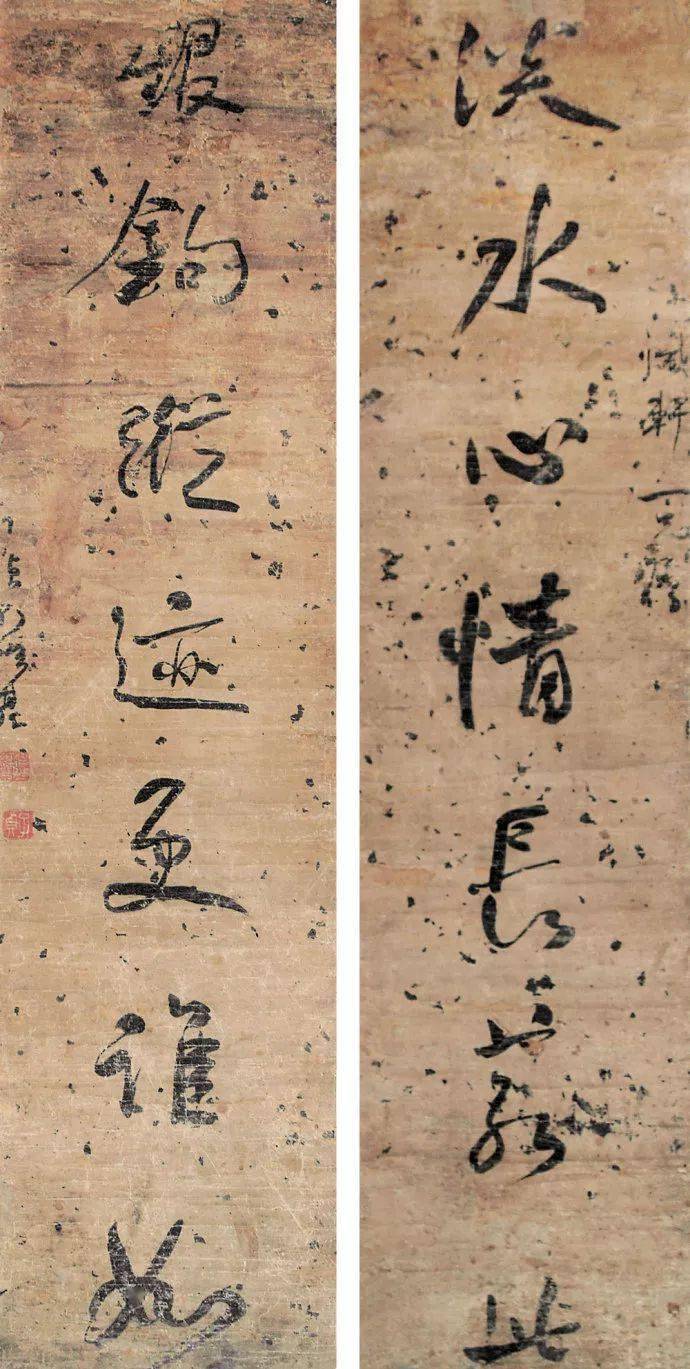 淡水心情長若此
銀鉤縱迹更誰如